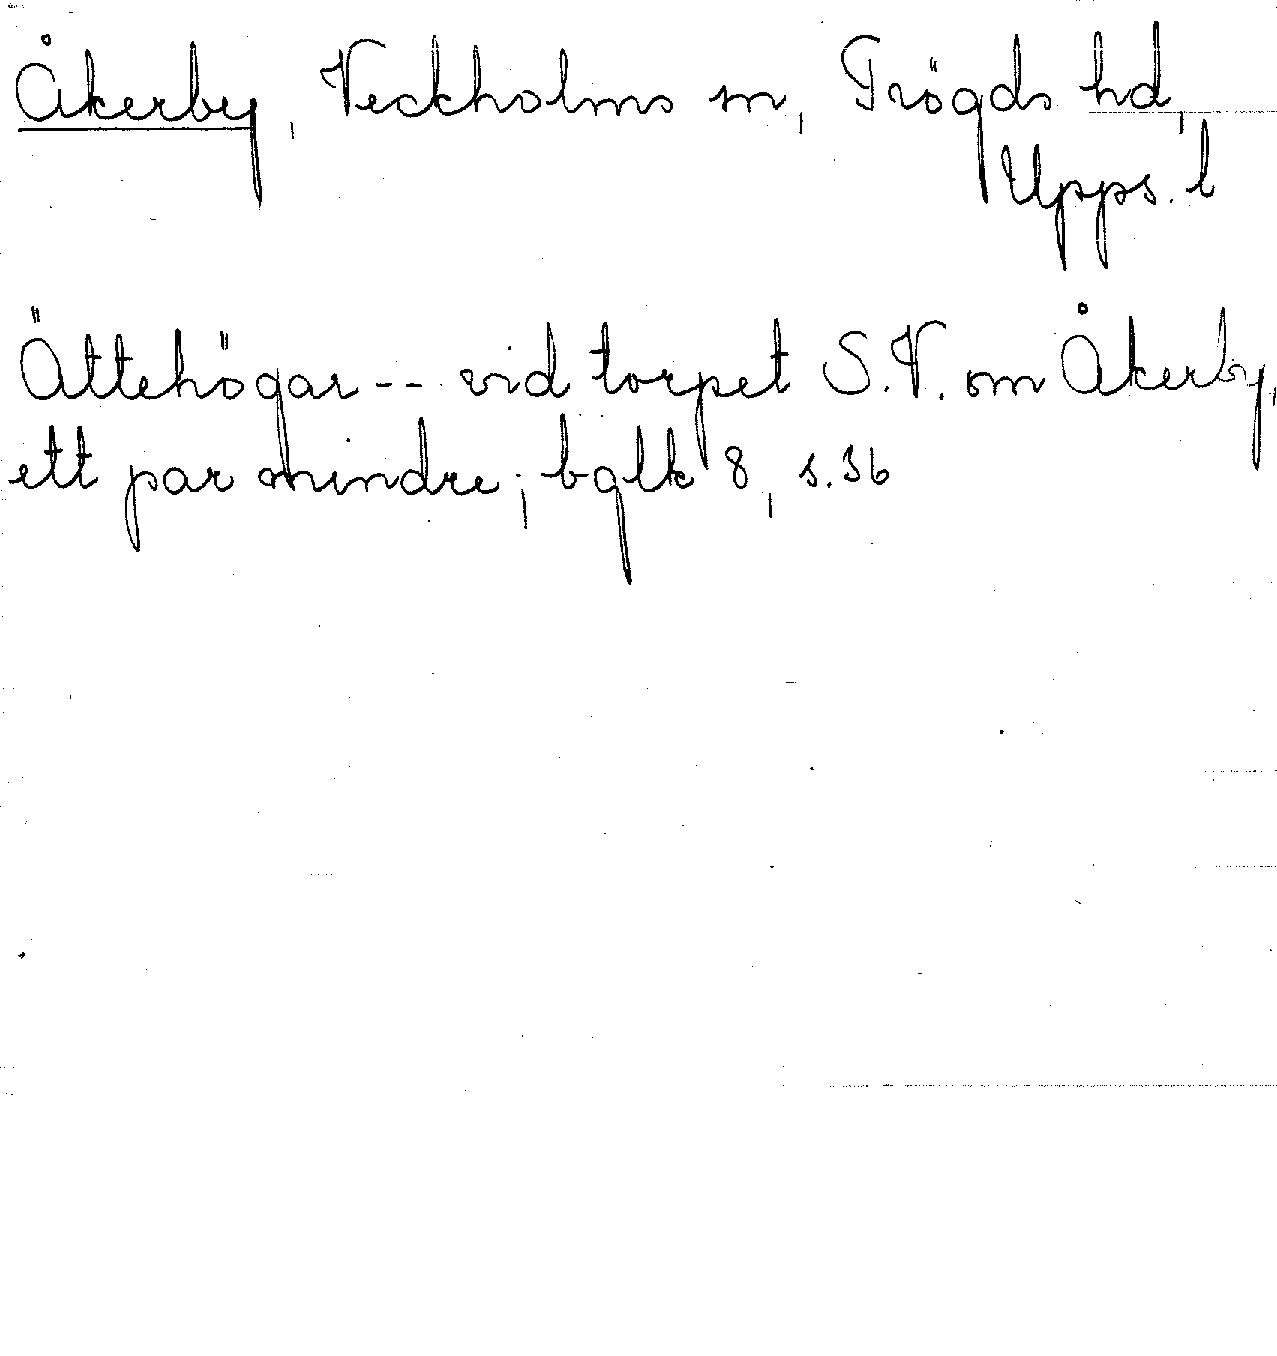 Åkerby, Veckholms sn, Trögds hd,
Upps. l
Ättehögar -- vid torpet S.V. om Åkerby,
ett par mindre; bglk 8, s. 36